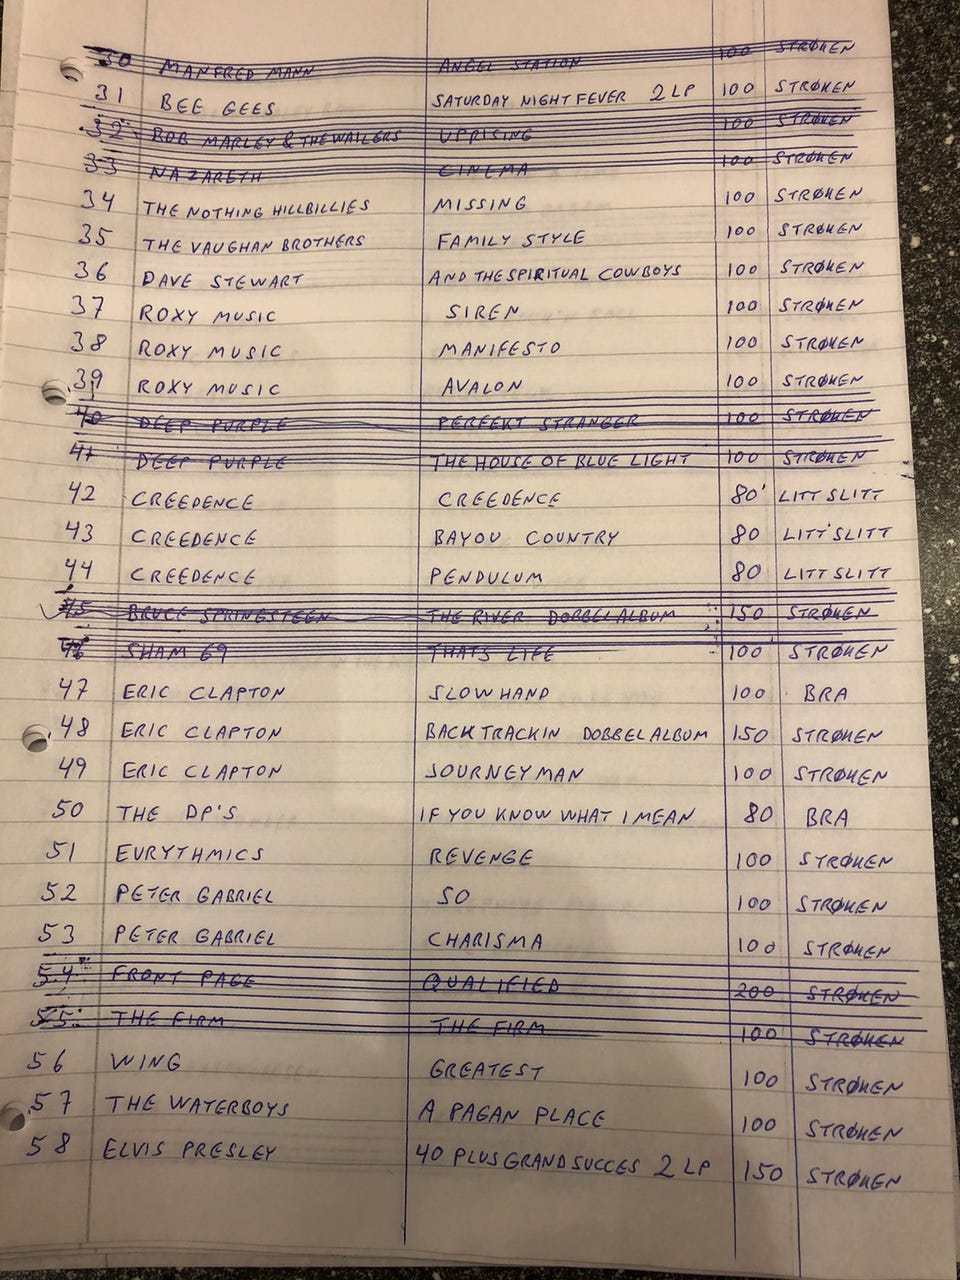 30 MANFRED MANN ANGEL STATION 100 STRØKEN
31 BEE GEES SATURDAY NIGHT FEVER 2 LP 100 STRØKEN
32 BOB MARLEY & THE WAILERS UPRISING 100 STRØKEN
33 NAZARETH CINEMA 100 STRØKEN
34 THE NOTHING HILLBILLIES MISSING 100 STRØKEN
35 THE VAUGHAN BROTHERS FAMILY STYLE 100 STRØKEN
36 DAVE STEWART AND THE SPIRITUAL COWBOYS 100 STRØKEN
37 ROXY MUSIC SIREN 100 STRØKEN
38 ROXY MUSIC MANIFESTO 100 STRØKEN
39 ROXY MUSIC AVALON 100 STRØKEN
40 DEEP PURPLE PERFEKT STRANGER 100 STRØKEN
41 DEEP PURPLE THE HOUSE OF BLUE LIGHT 100 STRØKEN
42 CREEDENCE CREEDENCE 80 LITT SLITT
43 CREEDENCE BAYOU COUNTRY 80 LITT SLITT
44 CREEDENCE PENDULUM 80 LITT SLITT
45 BRUCE SPRINGSTEEN THE RIVER DOBBELALBUM 150 STRØKEN
46 SHAM 69 THATS LIFE 100 STRØKEN
47 ERIC CLAPTON SLOWHAND 100 BRA
48 ERIC CLAPTON BACKTRACKIN DOBBELALBUM 150 STRØKEN
49 ERIC CLAPTON JOURNEYMAN 100 STRØKEN
50 THE DP'S IF YOU KNOW WHAT I MEAN 80 BRA
51 EURYTHMICS REVENGE 100 STRØKEN
52 PETER GABRIEL SO 100 STRØKEN
53 PETER GABRIEL CHARISMA 100 STRØKEN
54 FRONT PAGE QUALIFIED 200 STRØKEN
55 THE FIRM THE FIRM 100 STRØKEN
56 WING GREATEST 100 STRØKEN
57 THE WATERBOYS A PAGAN PLACE 100 STRØKEN
58 ELVIS PRESLEY 40 PLUS GRAND SUCCES 2 LP 150 STRØKEN